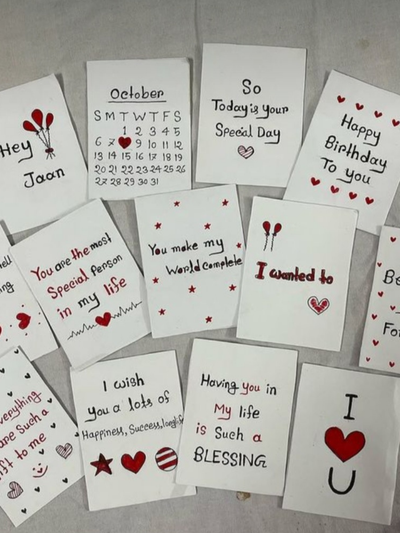 Hey
Jaan
October
S M T W T F S
1 2 3 4 5
6 7 9 10 11 12
13 14 15 16 17 18 19
20 21 22 23 24 25 26
27 28 29 30 31
So
Today is your
Special Day
Happy
Birthday
To you
You are the most
Special Person
in my life
You make my
World Complete
I wanted to
Be
For
I wish
you a lots of
Happiness, Success, longlife
Having you in
My life
is Such a
BLESSING
I
U
everything
are Such a
to me